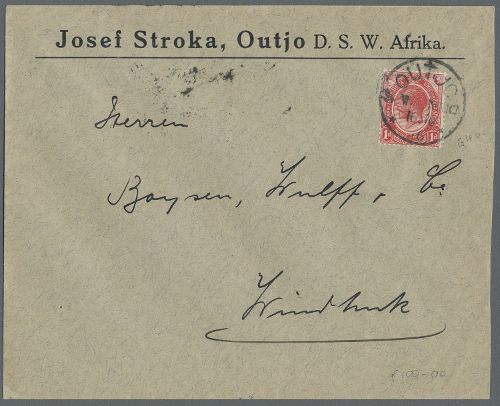 Josef Stroka, Outjo D. S. W. Afrika.
OUTJO
1d 1d
Herren
Boysen, Wulff & Co
Windhuk